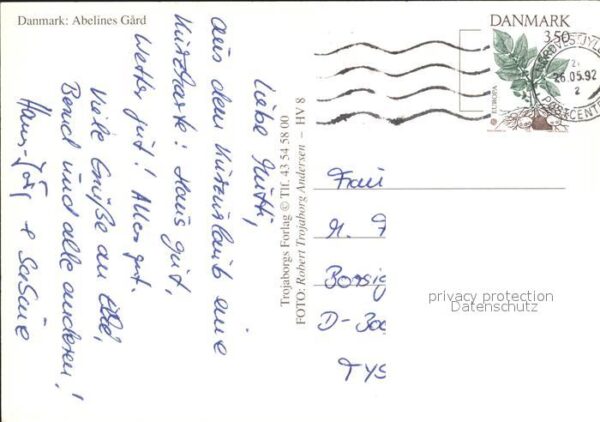 Danmark: Abelines Gård
DANMARK
3,50
EUROPA
26.05.92
2
POSTCENTER
Liebe Mutti,
aus dem Kurzurlaub eine
Kurzkarte! Haus gut,
Wetter gut! Alles gut.
Viele Grüße an
Bernd und alle anderen!
Hans-Jörg + Sabine
Trojaborgs Forlag © Tlf. 43 54 58 00
FOTO: Robert Trojaborg Andersen – HV 8
Frau
M.
Borsig
D-300
TYS
privacy protection
Datenschutz